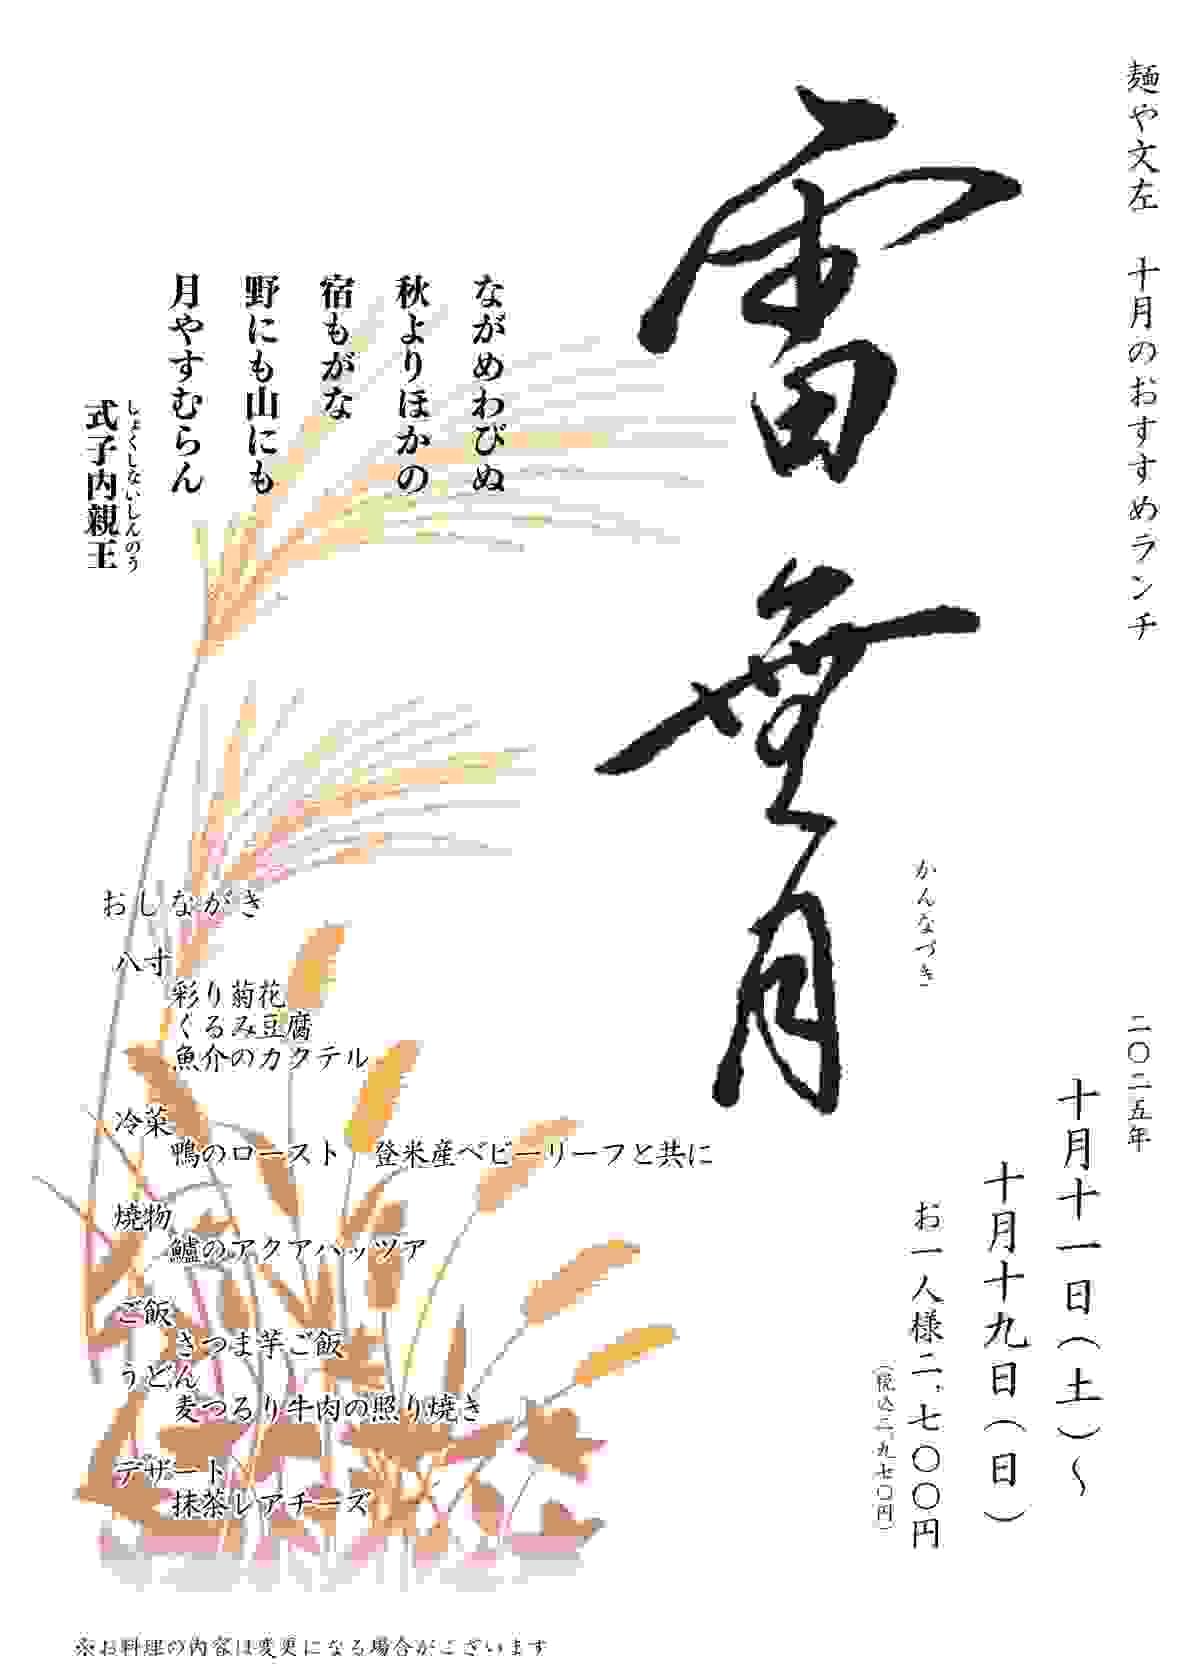 麺や文左　十月のおすすめランチ
雷無月
かんなづき
二〇二五年
十月十一日（土）～
十月十九日（日）
お一人様二，七〇〇円
（税込二，九七〇円）
ながめわびぬ
秋よりほかの
宿もがな
野にも山にも
月やすむらん
しょくしないしんのう
式子内親王
おしながき
八寸
彩り菊花
くるみ豆腐
魚介のカクテル
冷菜
鴨のロースト　登米産ベビーリーフと共に
焼物
鱸のアクアパッツア
ご飯
さつま芋ご飯
うどん
麦つるり牛肉の照り焼き
デザート
抹茶レアチーズ
※お料理の内容は変更になる場合がございます